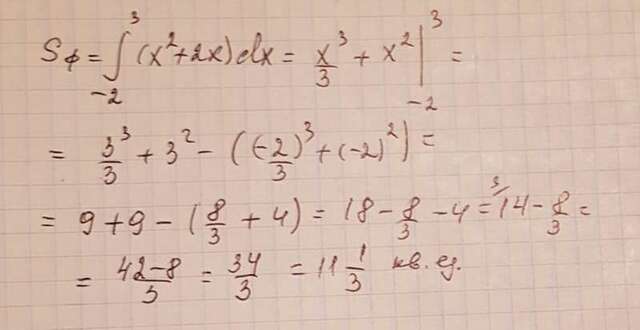 Sф = ∫₋₂³ (x² + 2x) dx = x³/3 + x² |₋₂³ =
= 3³/3 + 3² - ((-2)³/3 + (-2)²) =
= 9 + 9 - (8/3 + 4) = 18 - 8/3 - 4 = ³/14 - 8/3 =
= 42-8/3 = 34/3 = 11 1/3 кв. ед.